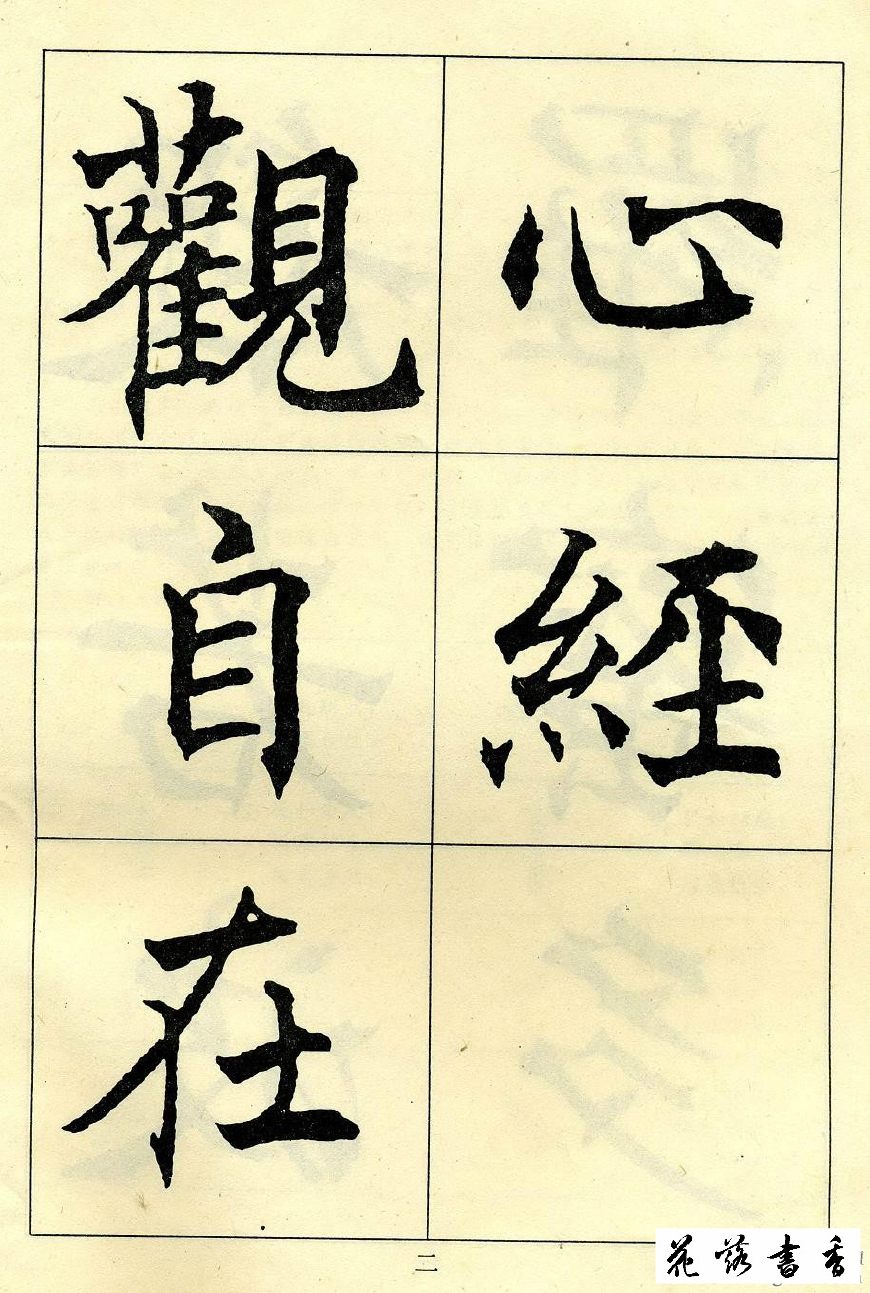 心經
觀自在
二
花落書香